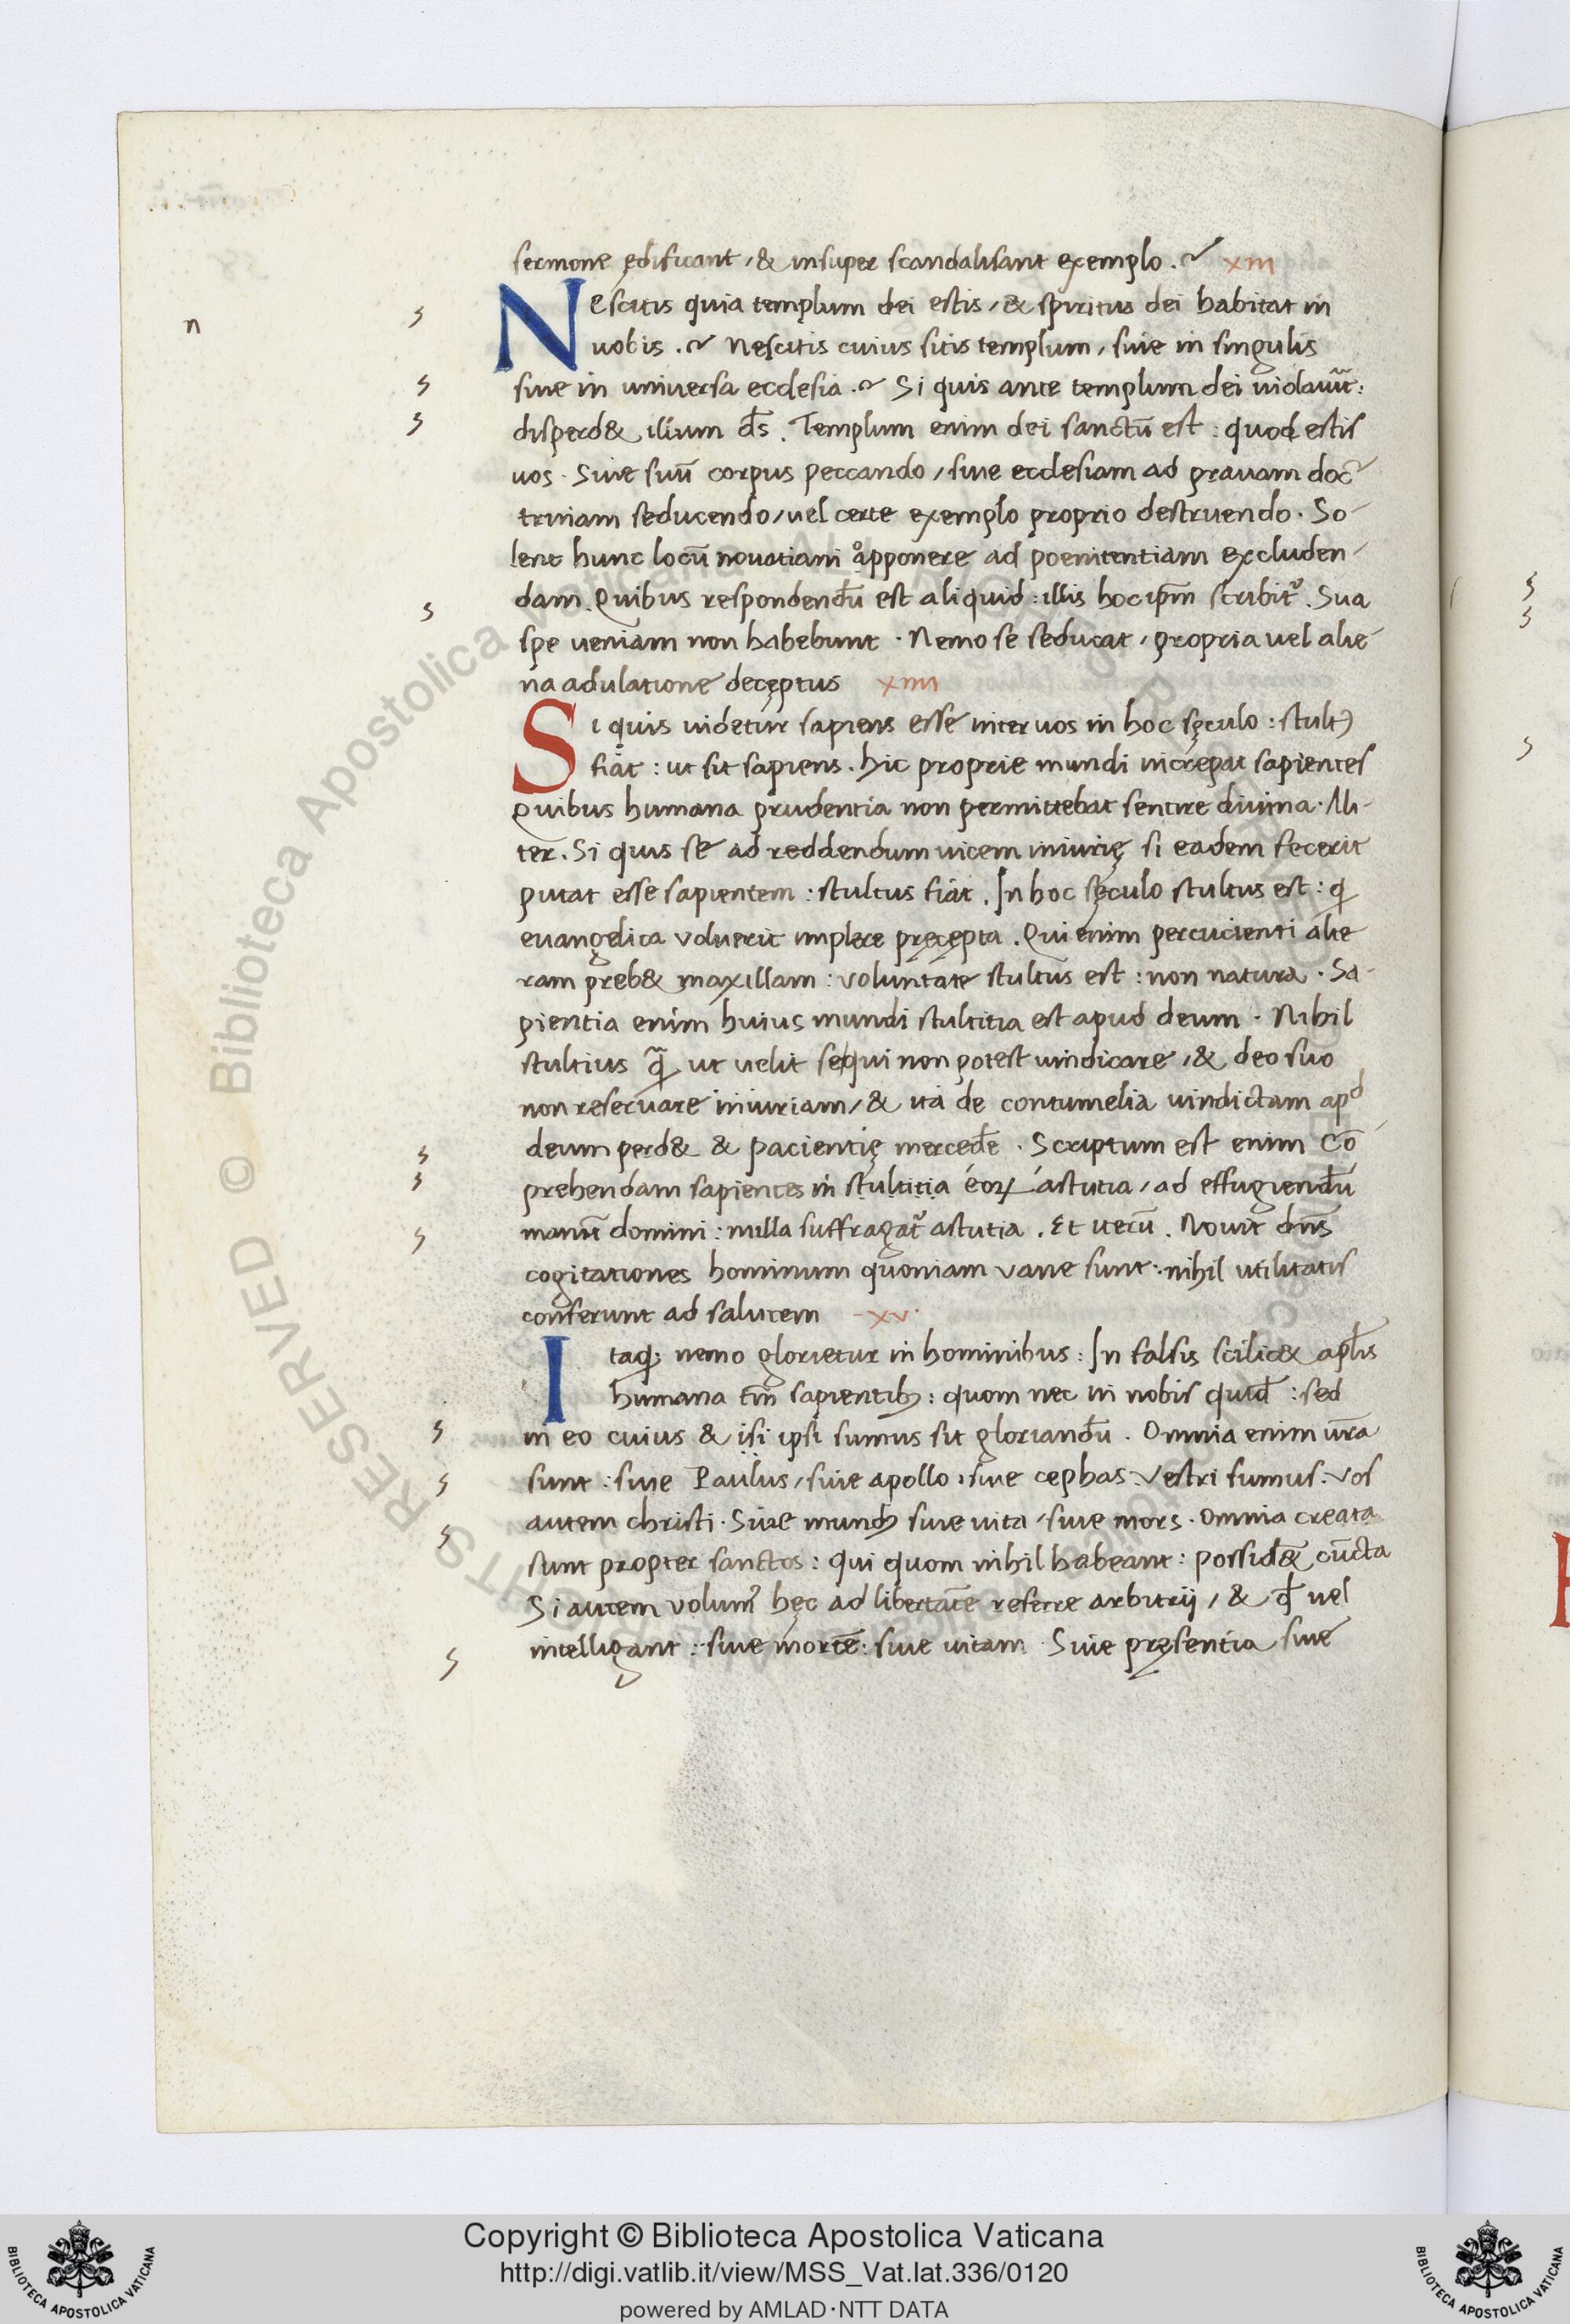 sermone ędificant, & insuper scandalisant exemplo. xiii
Nescitis quia templum dei estis, & spiritus dei habitat in
n
uobis. Nescitis cuius sitis templum, siue in singulis
siue in universa ecclesia. Si quis ante templum dei uiolauĩt:
disperd& illum dſ̄. Templum enim dei sanctū est: quod estis
uos. Siue suū corpus peccando, siue ecclesiam ad prauam doc-
trinam seducendo, uel certe exemplo proprio destruendo. So-
lent hunc locū nouatiani opponere ad poenitentiam excluden-
dam. Quibus respondendū est aliquid: illis hoc ip̄m scribit᷑. Sua
spe ueniam non habebunt. Nemo se seducat, propria uel alie-
na adulatione deceptus xiiii
Si quis uidetur sapiens esse inter uos in hoc sęculo: stultꝰ
fiat: ut sit sapiens. Hic proprie mundi increpat sapientes
Quibus humana prudentia non permittebat sentire diuina. Ali-
ter. Si quis se ad reddendum uicem iniurię si eadem fecerit
putat esse sapientem: stultus fiat. In hoc sęculo stultus est: q
euangelica voluerit implere pręcepta. Qui enim percucienti alte
ram preb& maxillam: voluntate stultus est: non natura. Sa-
pientia enim huius mundi stultitia est apud deum. Nihil
stultius q̃ ut uelit sequi non potest uindicare, & deo suo
non reseruare iniuriam, & ita de contumelia uindictam apd
deum perd& & pacientię mercedē. Scriptum est enim Cō
prehendam sapientes in stultitia eoꝝ astutia, ad effugiendū
manū domini: nulla suffragat᷑ astutia. Et iterū. Nouit dn̄s
cogitationes hominum quoniam vane sunt: nihil utilitatis
conferunt ad salutem xv.
Itaq; nemo glorietur in hominibus: In falsis scilic& apl̄is
humana tm̄ sapientibꝫ: quom nec in nobis quid̄: sed
in eo cuius & isi ipsi sumus sit gloriandū. Omnia enim ur̄a
sunt: siue Paulus, siue apollo, siue cephas: Vestri sumus. Vos
autem christi. Siue mundꝰ siue uita, siue mors. Omnia creata
sunt propter sanctos: qui quom nihil habeant: possid& cūcta
Si autem volumꝰ hęc ad libertatē referre arbitrij, & qđ uel
intelligant: siue mortē: siue uitam. Siue pręsentia siue
Copyright © Biblioteca Apostolica Vaticana
http://digi.vatlib.it/view/MSS_Vat.lat.336/0120
powered by AMLAD·NTT DATA